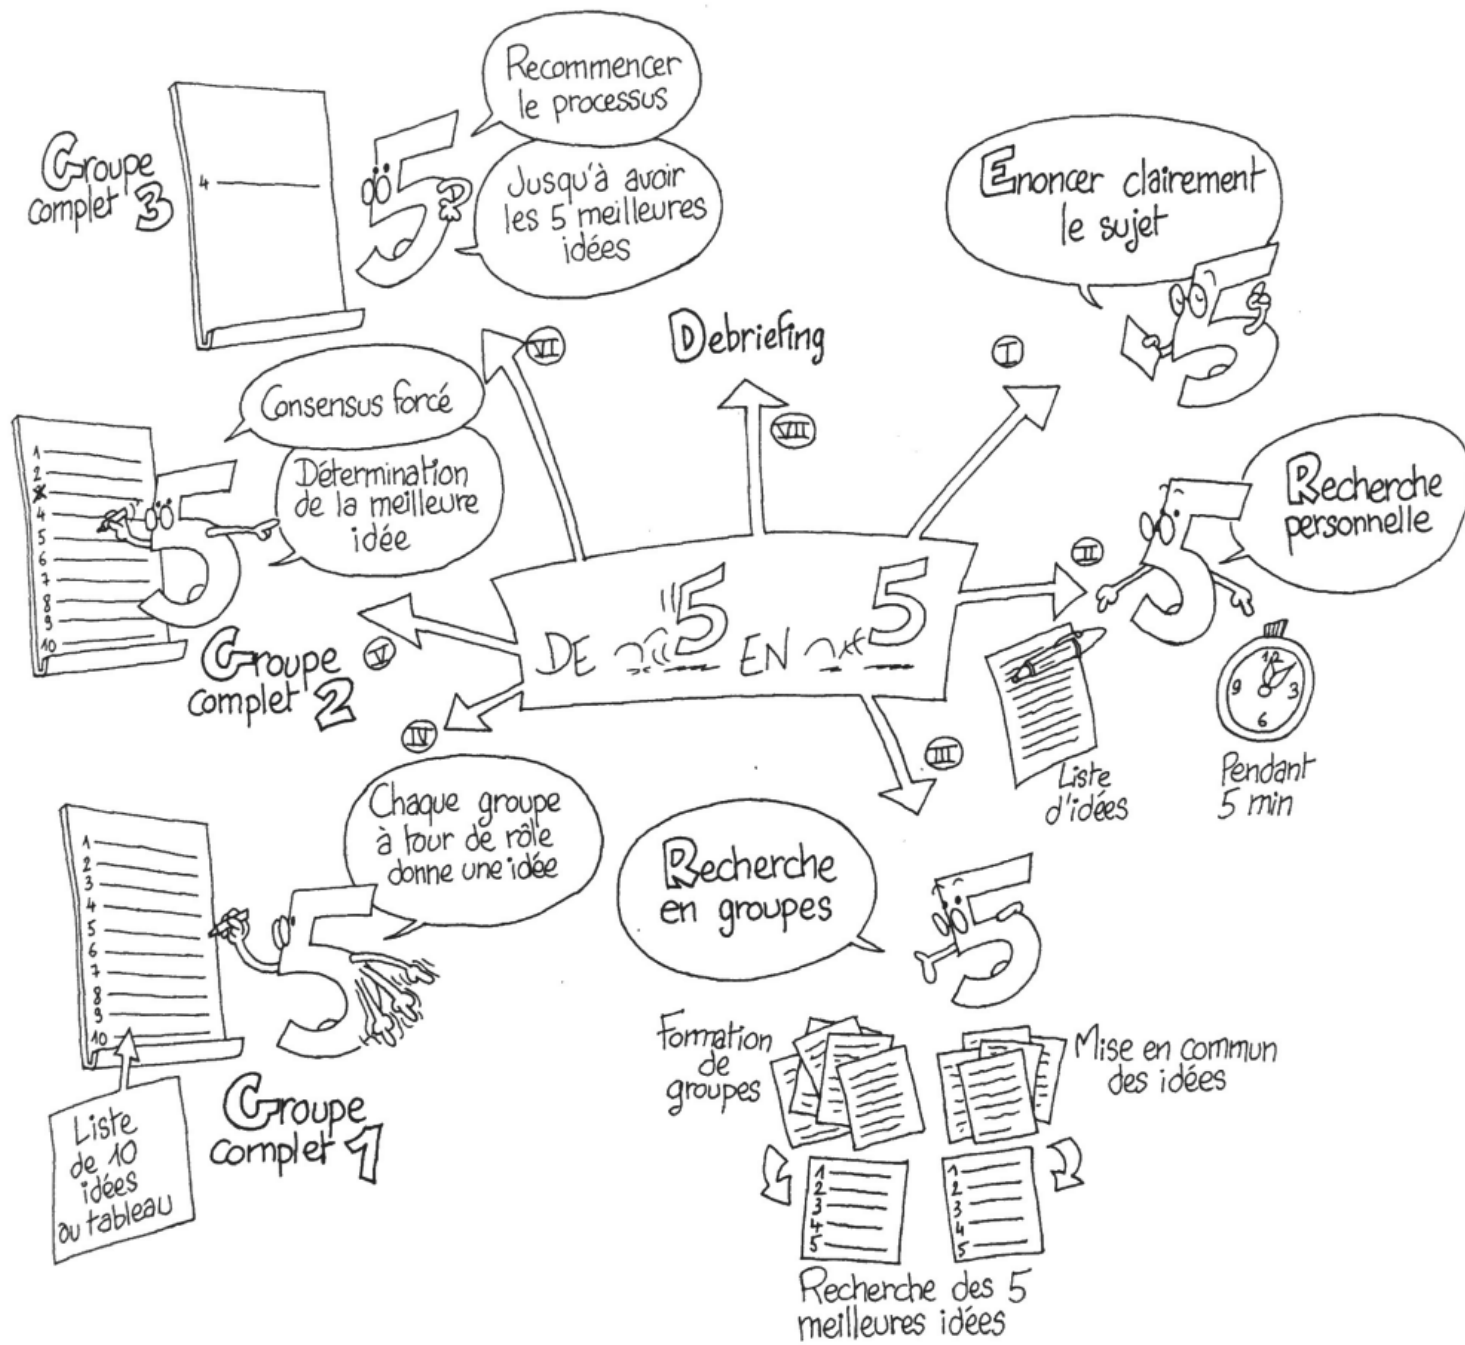 DE 5 EN 5
I
Enoncer clairement
le sujet
II
Recherche
personnelle
Liste
d'idées
12
3
6
9
Pendant
5 min
III
Recherche
en groupes
Formation
de
groupes
Mise en commun
des idées
1
2
3
4
5
1
2
3
4
5
Recherche des 5
meilleures idées
IV
Chaque groupe
à tour de rôle
donne une idée
1
2
3
4
5
6
7
8
9
10
Liste
de 10
idées
au tableau
Groupe
complet 1
V
Consensus forcé
Détermination
de la meilleure
idée
1
2
4
5
6
7
8
9
10
Groupe
complet 2
VI
Recommencer
le processus
Jusqu'à avoir
les 5 meilleures
idées
4
Groupe
complet 3
VII
Debriefing